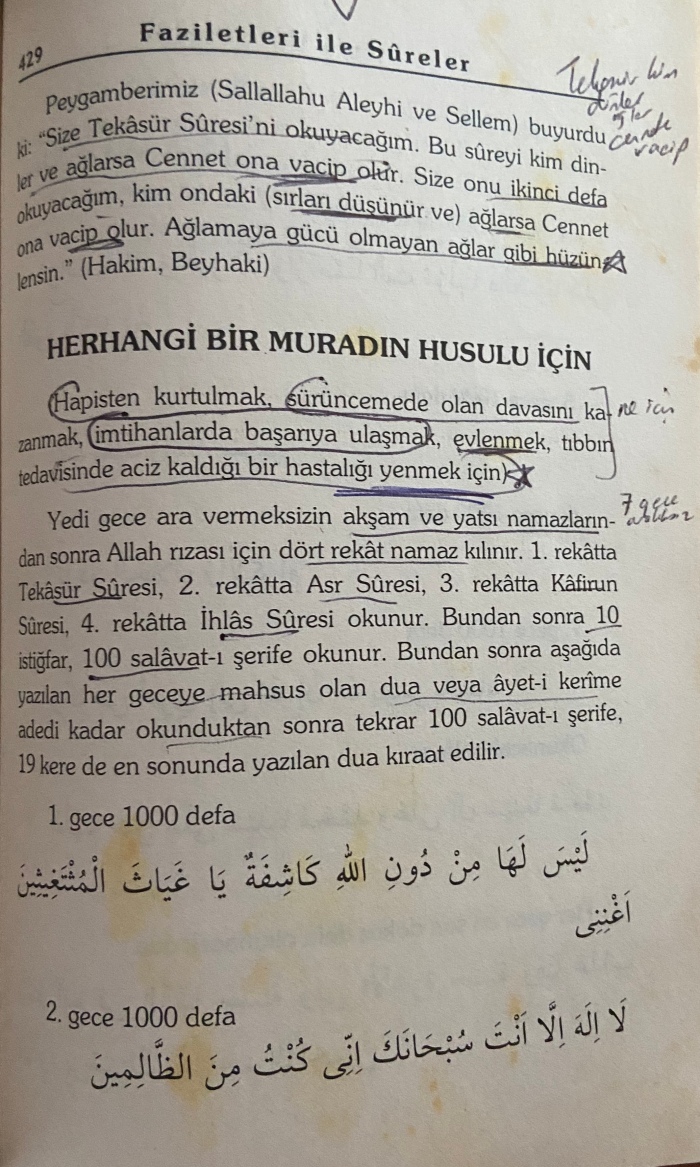 429
Faziletleri ile Sûreler
Tekasür kim
dinler
ağlar
cennde
vacip
Peygamberimiz (Sallallahu Aleyhi ve Sellem) buyurdu
ki: “Size Tekâsür Sûresi’ni okuyacağım. Bu sûreyi kim din-
ler ve ağlarsa Cennet ona vacip olur. Size onu ikinci defa
okuyacağım, kim ondaki (sırları düşünür ve) ağlarsa Cennet
ona vacip olur. Ağlamaya gücü olmayan ağlar gibi hüzün-
lensin.” (Hakim, Beyhaki)
HERHANGİ BİR MURADIN HUSULU İÇİN
Hapisten kurtulmak, sürüncemede olan davasını ka-
zanmak, imtihanlarda başarıya ulaşmak, evlenmek, tıbbın
tedavisinde aciz kaldığı bir hastalığı yenmek için)
ne için
Yedi gece ara vermeksizin akşam ve yatsı namazların-
7 gece
dan sonra Allah rızası için dört rekât namaz kılınır. 1. rekâtta
Tekâsür Sûresi, 2. rekâtta Asr Sûresi, 3. rekâtta Kâfirun
Sûresi, 4. rekâtta İhlâs Sûresi okunur. Bundan sonra 10
istiğfar, 100 salâvat-ı şerife okunur. Bundan sonra aşağıda
yazılan her geceye mahsus olan dua veya âyet-i kerîme
adedi kadar okunduktan sonra tekrar 100 salâvat-ı şerife,
19 kere de en sonunda yazılan dua kıraat edilir.
1. gece 1000 defa
لَيْسَ لَهَا مِنْ دُونِ اللهِ كَاشِفَةٌ يَا غَيَاثَ الْمُسْتَغِيثِينَ
اَغْنِنِى
2. gece 1000 defa
لَا اِلَهَ اِلَّا اَنْتَ سُبْحَانَكَ اِنِّى كُنْتُ مِنَ الظَّالِمِينَ